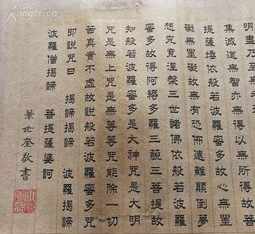 明盡乃至無老死亦無老死盡無苦
集滅道無智亦無得以無所得故菩
提薩埵依般若波羅密多故心無罣
礙無罣礙故無有恐怖遠離顛倒夢
想究竟涅槃三世諸佛依般若波羅
密多故得阿耨多羅三藐三菩提故
知般若波羅密多是大神咒是大明
咒是無上咒是無等等咒能除一切
苦真實不虛故說般若波羅密多咒
即說咒曰 揭諦揭諦 波羅揭諦
波羅僧揭諦 菩提薩婆訶
華世奎敬書